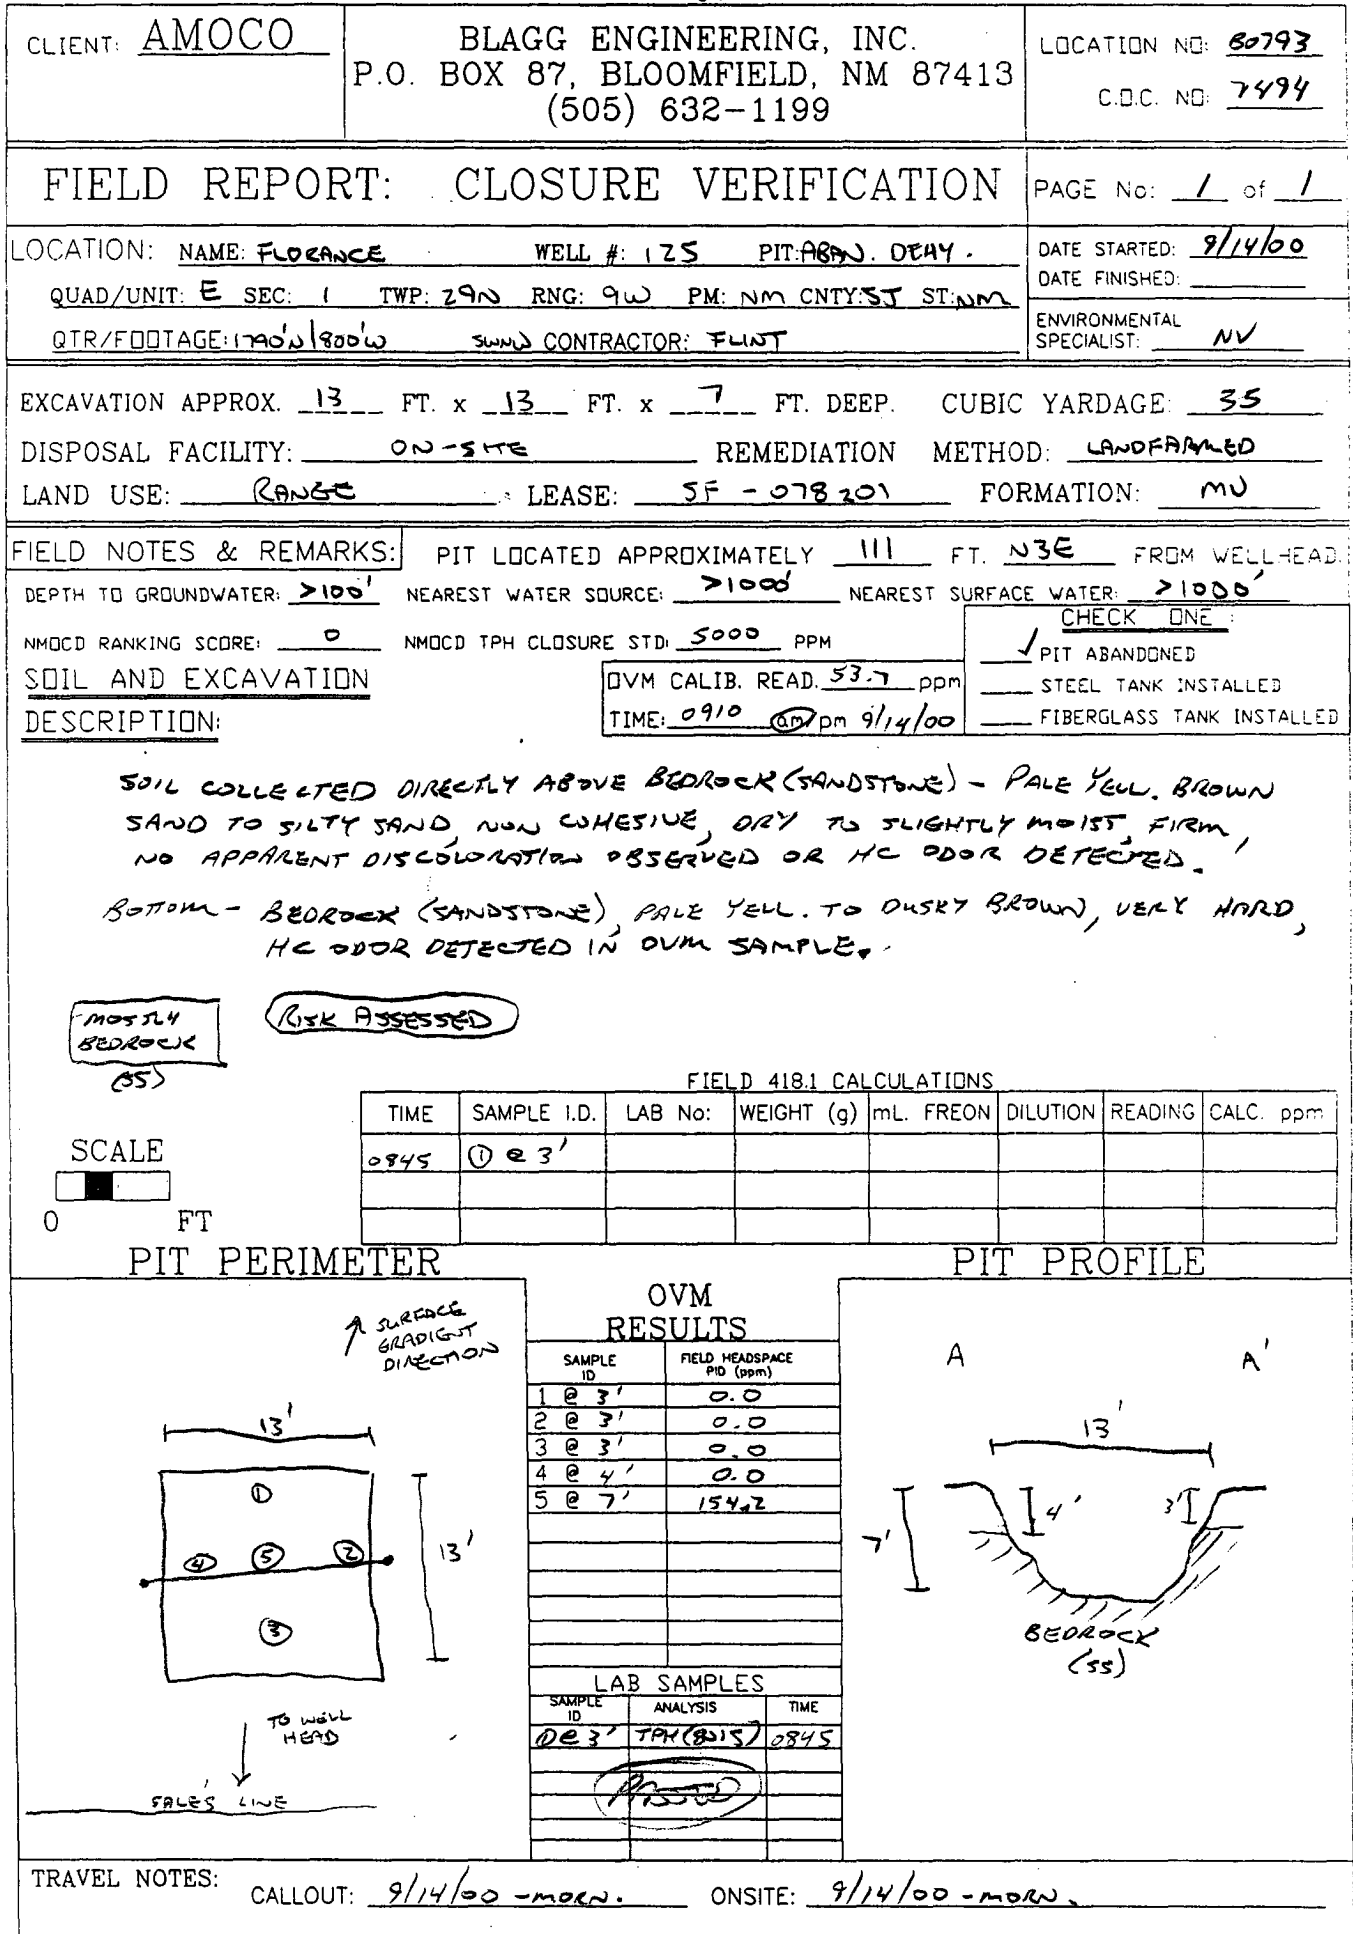 CLIENT: AMOCO
BLAGG ENGINEERING, INC.
P.O. BOX 87, BLOOMFIELD, NM 87413
(505) 632-1199
LOCATION NO: B0793
C.O.C. NO: 7494
FIELD REPORT: CLOSURE VERIFICATION
PAGE No: 1 of 1
LOCATION: NAME: FLORANCE WELL #: 125 PIT: ABAN. DEHY.
QUAD/UNIT: E SEC: 1 TWP: 29N RNG: 9W PM: NM CNTY: SJ ST: NM
QTR/FOOTAGE: 1790'N/800'W SWNW CONTRACTOR: FLINT
DATE STARTED: 9/14/00
DATE FINISHED:
ENVIRONMENTAL
SPECIALIST: NV
EXCAVATION APPROX. 13 FT. x 13 FT. x 7 FT. DEEP. CUBIC YARDAGE: 35
DISPOSAL FACILITY: ON-SITE REMEDIATION METHOD: LANDFARMED
LAND USE: RANGE LEASE: SF - 078201 FORMATION: MV
FIELD NOTES & REMARKS: PIT LOCATED APPROXIMATELY 111 FT. N3E FROM WELLHEAD.
DEPTH TO GROUNDWATER: >100' NEAREST WATER SOURCE: >1000' NEAREST SURFACE WATER: >1000'
NMOCD RANKING SCORE: 0 NMOCD TPH CLOSURE STD: 5000 PPM
CHECK ONE :
✓ PIT ABANDONED
STEEL TANK INSTALLED
FIBERGLASS TANK INSTALLED
SOIL AND EXCAVATION
DESCRIPTION:
OVM CALIB. READ. 53.7 ppm
TIME: 0910 am/pm 9/14/00
SOIL COLLECTED DIRECTLY ABOVE BEDROCK (SANDSTONE) - PALE YELL. BROWN
SAND TO SILTY SAND, NON COHESIVE, DRY TO SLIGHTLY MOIST, FIRM,
NO APPARENT DISCOLORATION OBSERVED OR HC ODOR DETECTED.
BOTTOM - BEDROCK (SANDSTONE), PALE YELL. TO DUSKY BROWN, VERY HARD,
HC ODOR DETECTED IN OVM SAMPLE.
MOSTLY
BEDROCK
(SS)
RISK ASSESSED
FIELD 418.1 CALCULATIONS
TIME SAMPLE I.D. LAB No: WEIGHT (g) mL. FREON DILUTION READING CALC. ppm
0845 ① @ 3'
SCALE
0 FT
PIT PERIMETER
SURFACE
GRADIENT
DIRECTION
13'
①
④ ⑤ ②
13'
③
TO WELL
HEAD
SALES LINE
OVM
RESULTS
SAMPLE ID FIELD HEADSPACE PID (ppm)
1 @ 3' 0.0
2 @ 3' 0.0
3 @ 3' 0.0
4 @ 4' 0.0
5 @ 7' 154.2
LAB SAMPLES
SAMPLE ID ANALYSIS TIME
① @ 3' TPH (8015) 0845
PASSED
PIT PROFILE
A A'
13'
7' 4' 3'
BEDROCK
(SS)
TRAVEL NOTES:
CALLOUT: 9/14/00 - MORN. ONSITE: 9/14/00 - MORN.